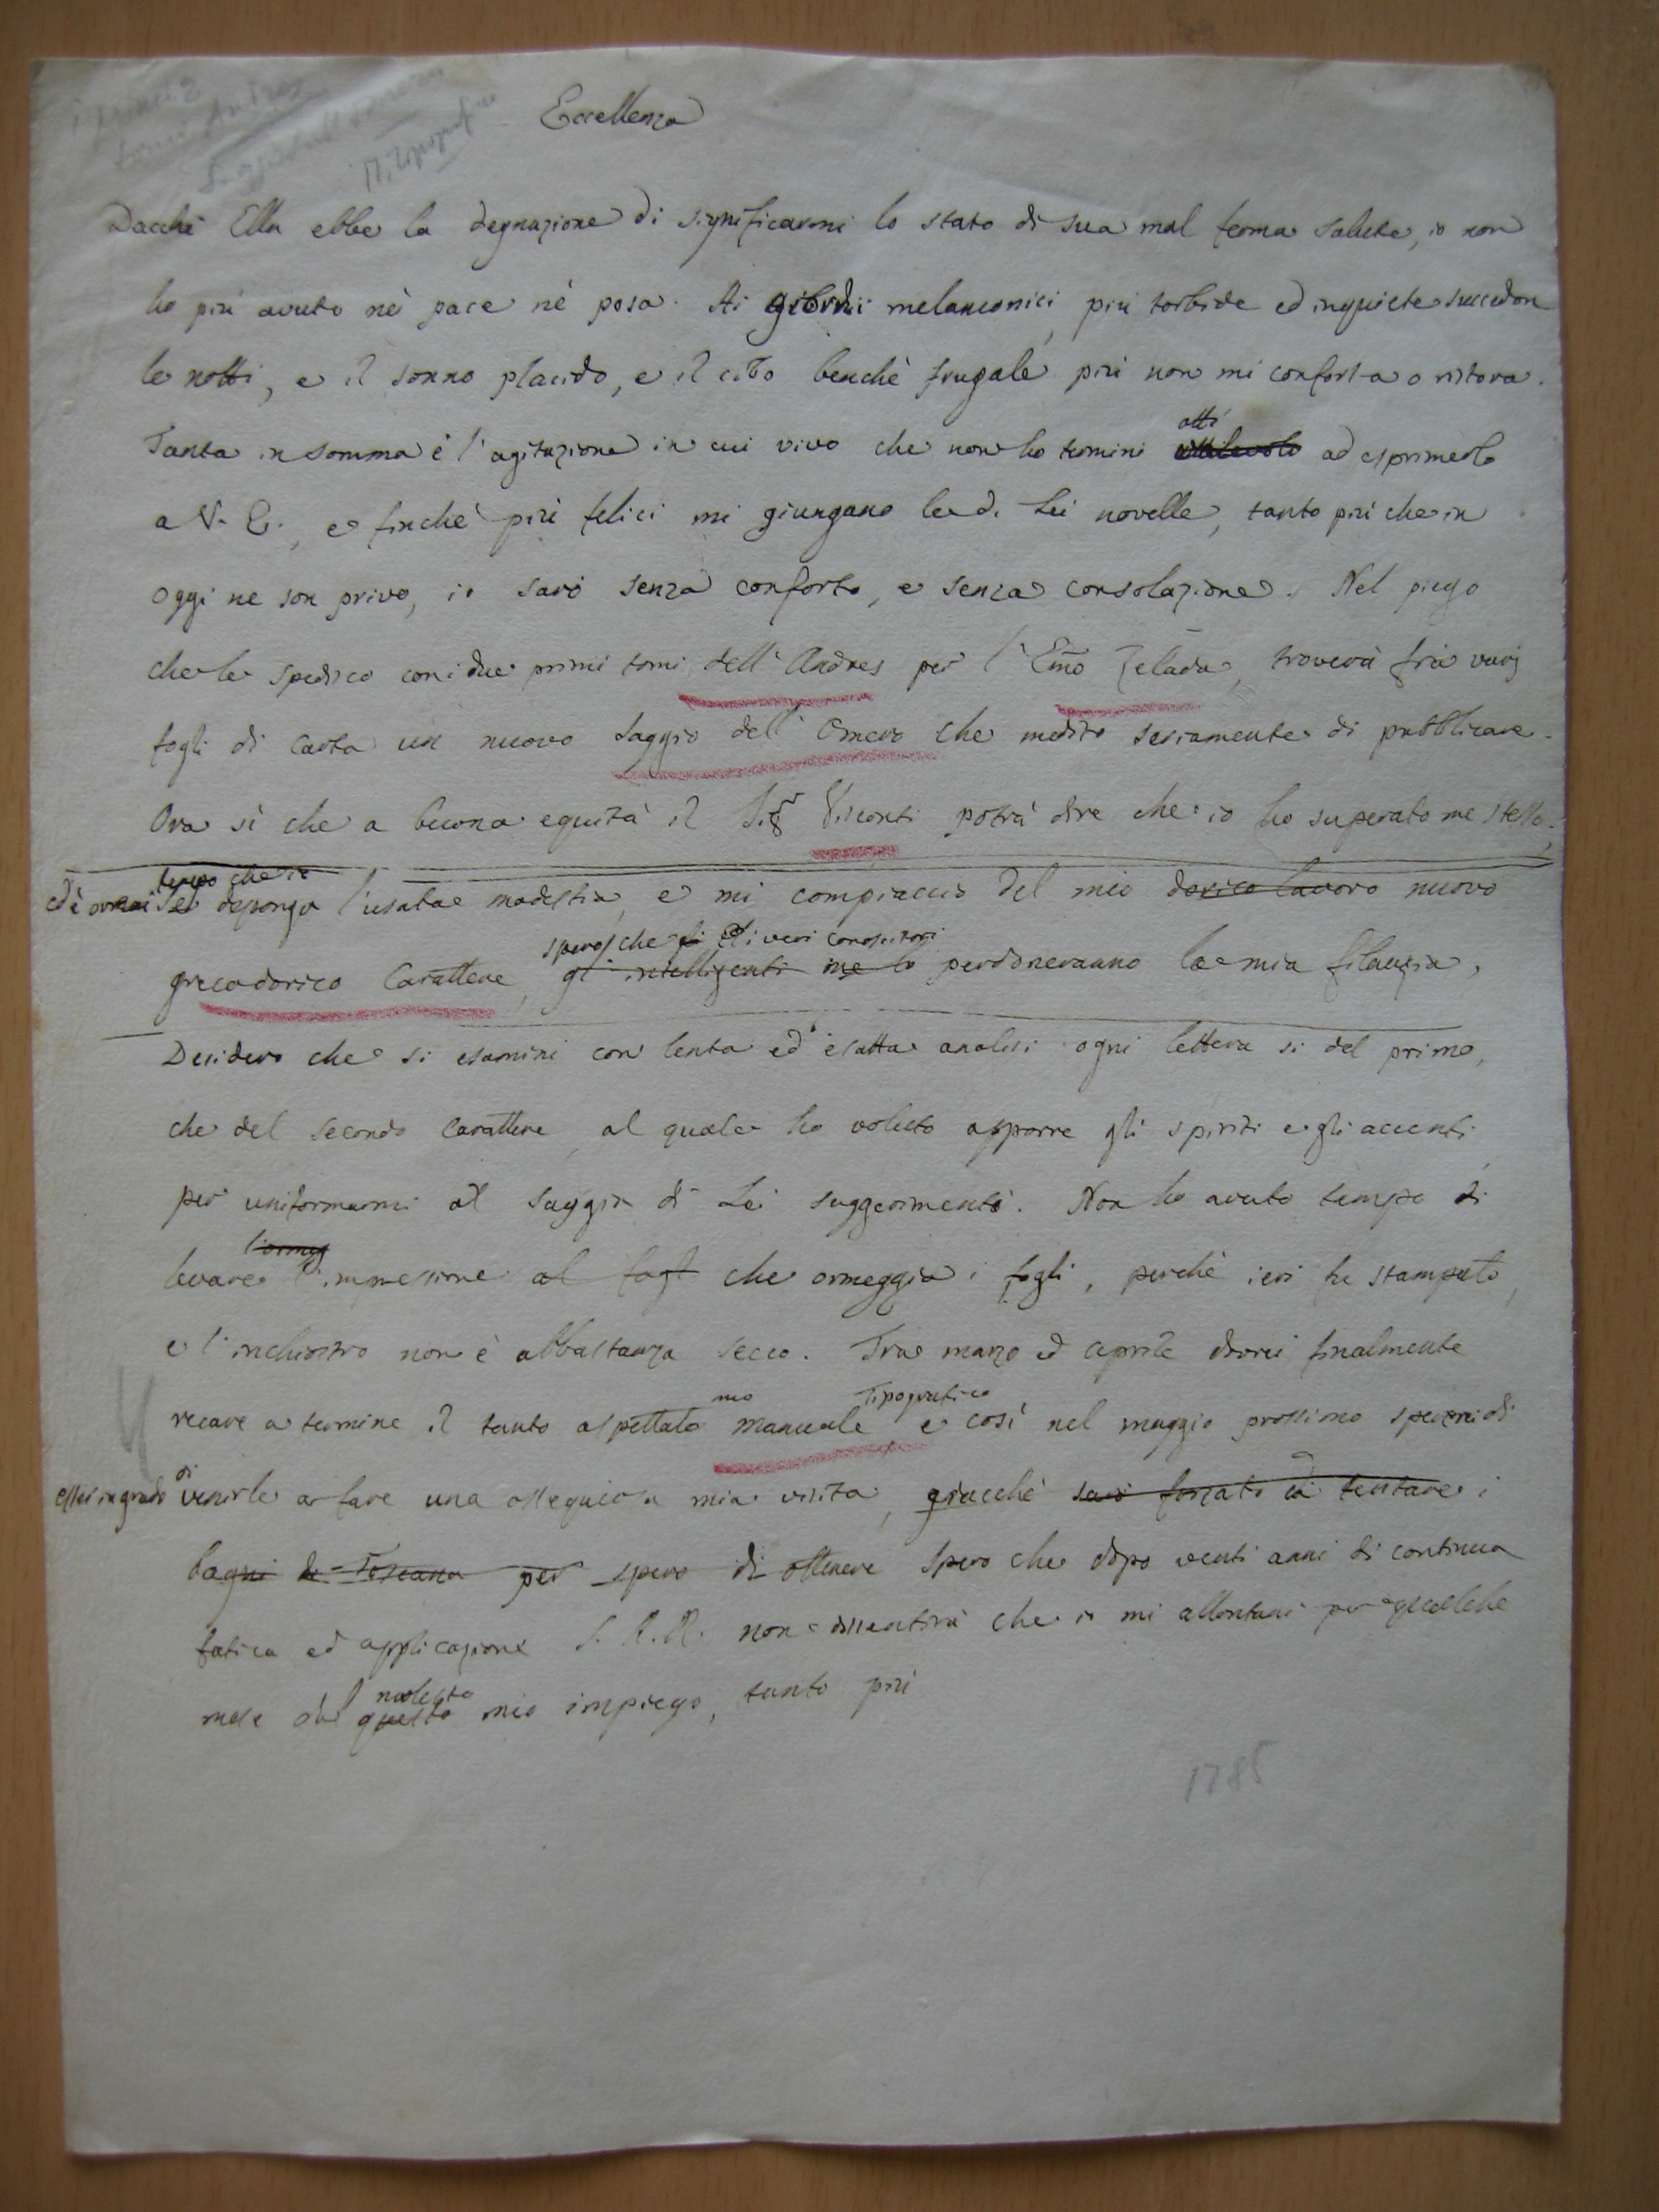 Eccellenza
Dacchè Ella ebbe la degnazione di significarmi lo stato di sua mal ferma salute, io non
ho più avuto nè pace nè posa. Ai giorni melanconici, più torbide ed inquiete succedon
le notti, e il sonno placido, e il cibo benchè frugale più non mi conforta o ristora.
atti
Tanta in somma è l'agitazione in cui vivo che non ho termini ad esprimerla
a V. E., e finchè più felici mi giungano le di Lei novelle, tanto più che in
oggi ne son privo, io sarò senza conforto, e senza consolazione. Nel piego
che le spedisco con i due primi tomi dell'Andres per l'Emo Zelada, troverà fra varj
fogli di carta un nuovo saggio dell'Omero che medito seriamente di pubblicare.
Ora sì che a buona equità il Sigr Visconti potrà dire che io ho superato me stesso;
tempo che io
ed è ormai deponga l'usata modestia, e mi compiaccia del mio dorico lavoro nuovo
spero che gli i veri conoscitori
grecodorico Carattere, gl'intelligenti me lo perdoneranno la mia filauzia,
Desidero che si esamini con lenta ed esatta analisi ogni lettera sì del primo,
che del secondo carattere, al quale ho voluto apporre gli spiriti e gli accenti,
per uniformarmi al saggio di Lei suggerimento. Non ho avuto tempo di
l'ormeg
levare l'impressione al fogl che ormeggia i fogli, perchè ieri fu stampato,
e l'inchiostro non è abbastanza secco. Tra marzo ed aprile dovrei finalmente
mio Tipografico
recare a termine il tanto aspettato manuale, e così nel maggio prossimo sperarei di
esser in grado di venirle a fare una ossequiosa mia visita, giacchè sarò forzato di tentare i
bagni di Toscana per spero di ottenere spero che dopo venti anni di continua
fatica ed applicazione S. A. R. non dissentirà che io mi allontani per qualche
molesto
mese dal questo mio impiego, tanto più
1785